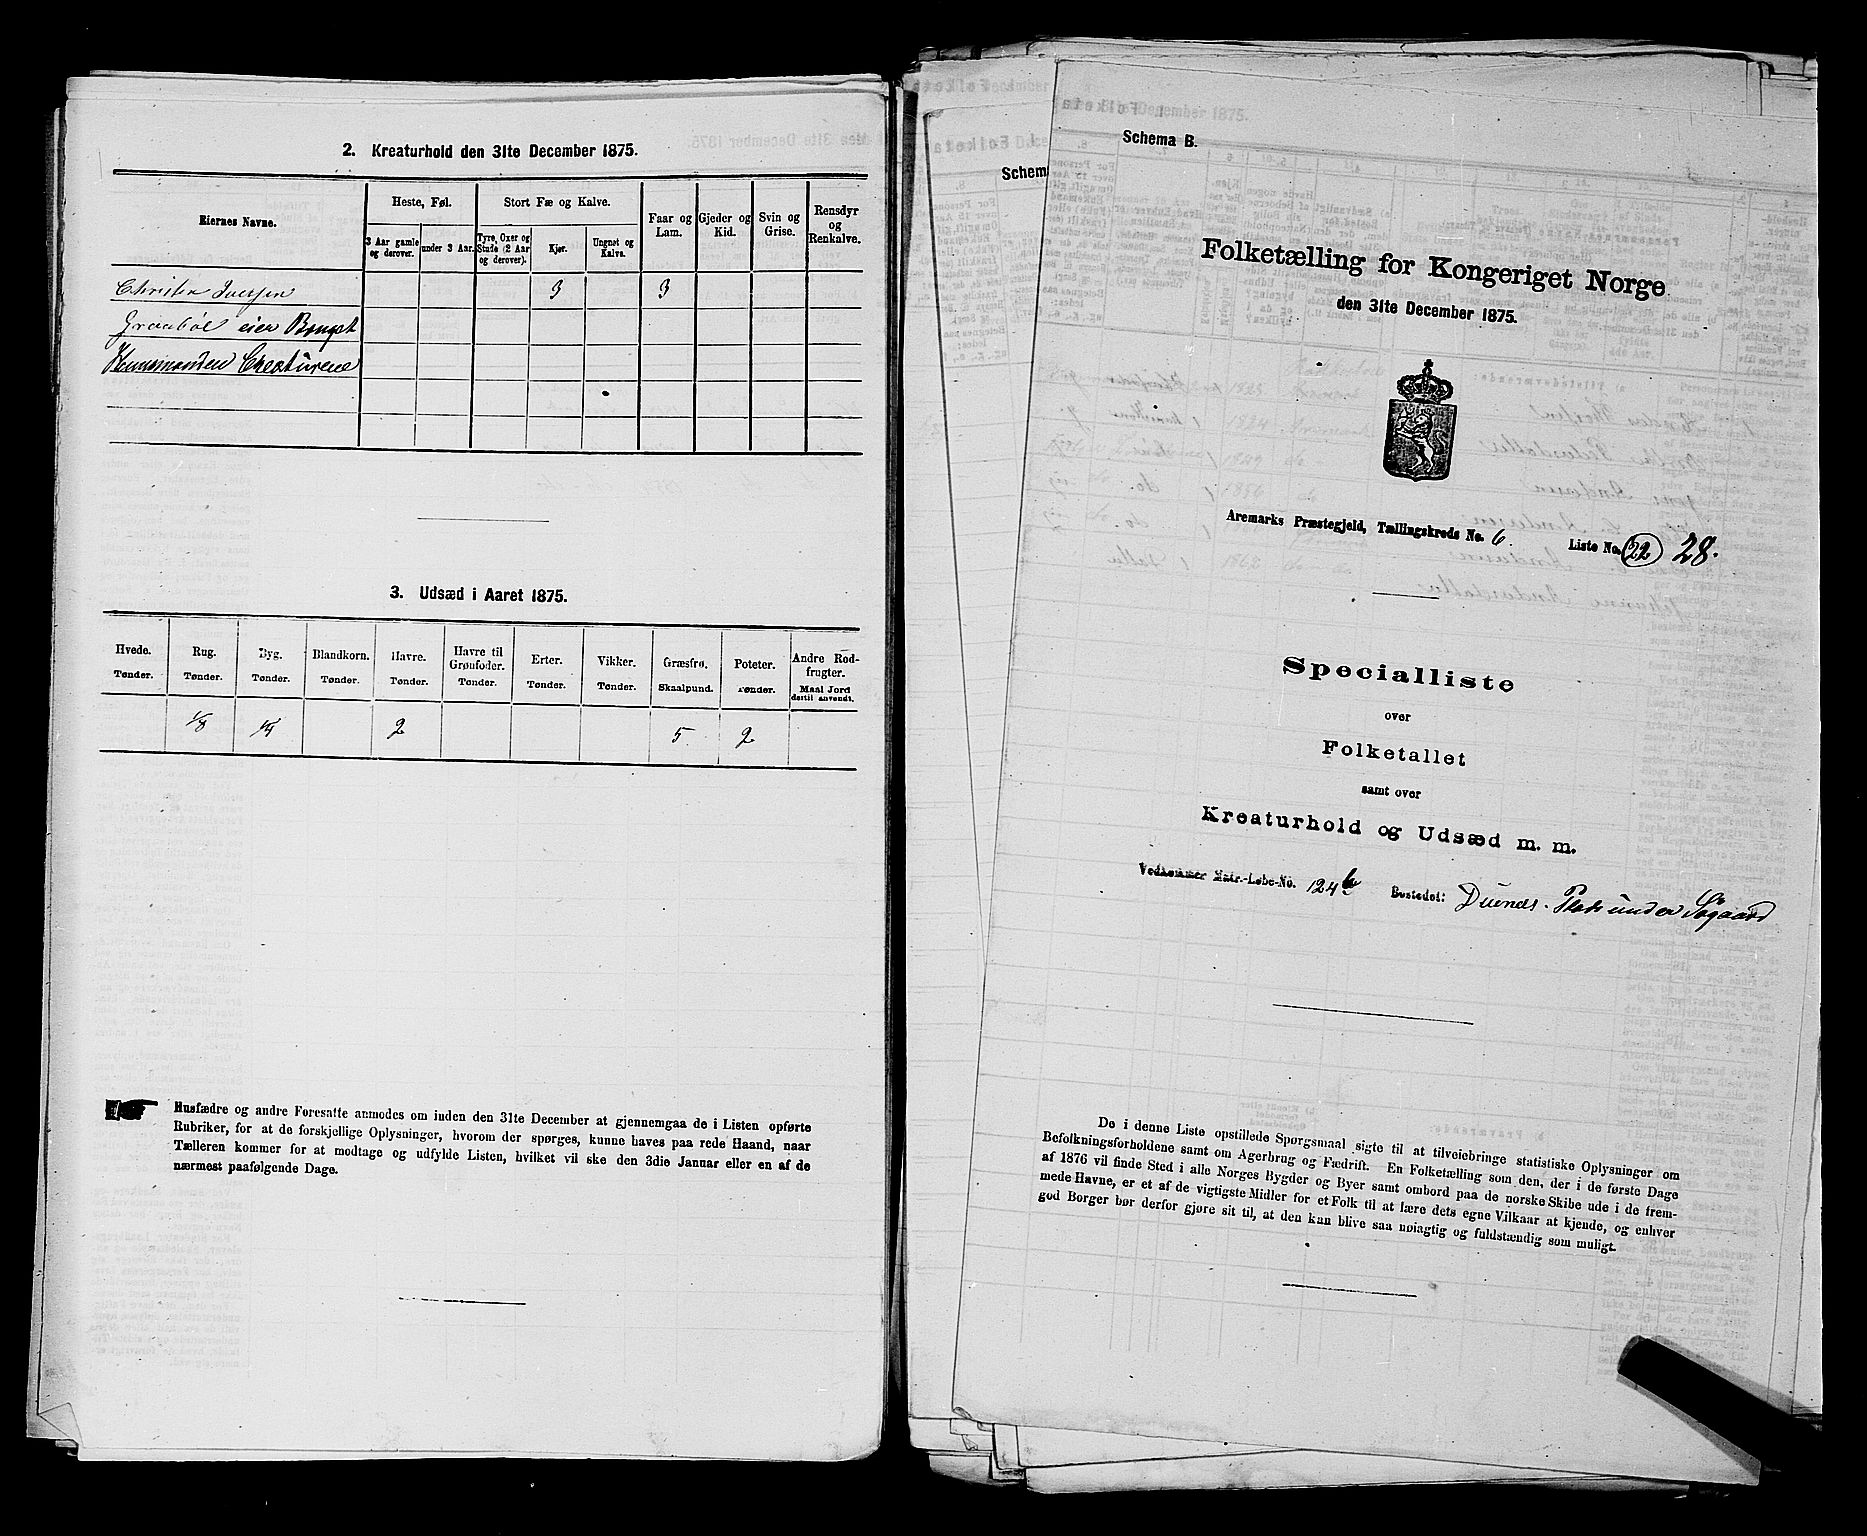 2. Kreaturhold den 31te December 1875.
Eiernes Navne.
Heste, Føl.
Stort Fæ og Kalve.
Faar og Lam.
Gjeder og Kid.
Svin og Grise.
Rensdyr og Renkalve.
3 Aar gamle og derover.
under 3 Aar.
Tyre, Oxer og Stude (2 Aar og derover).
Kjør.
Ungnøt og Kalve.
Christen Iversen 3 3
eier
Huusmanden Creaturene
3. Udsæd i Aaret 1875.
Hvede. Rug. Byg. Blandkorn. Havre. Havre til Grønfoder. Erter. Vikker. Græsfrø. Poteter. Andre Rodfrugter.
Tønder. Tønder. Tønder. Tønder. Tønder. Tønder. Tønder. Tønder. Skaalpund. Tønder. Maal Jord dertil anvendt.
1/8 1/4 2 5 2
Husfædre og andre Foresatte anmodes om inden den 31te December at gjennemgaa de i Listen opførte
Rubriker, for at de forskjellige Oplysninger, hvorom der spørges, kunne haves paa rede Haand, naar
Tælleren kommer for at modtage og udfylde Listen, hvilket vil ske den 3die Januar eller en af de
nærmest paafølgende Dage.
Schem
Schema B.
Folketælling for Kongeriget Norge
den 31te December 1875.
Aremarks Præstegjeld, Tællingskreds No. 6. Liste No. 22 28.
Specialliste
over
Folketallet
samt over
Kreaturhold og Udsæd m. m.
Vedkommer Matr.-Løbe-No. 124 b Bostedet: Duenæs. Plads under Søgaard
De i denne Liste opstillede Spørgsmaal sigte til at tilveiebringe statistiske Oplysninger om
Befolkningsforholdene samt om Agerbrug og Fædrift. En Folketælling som den, der i de første Dage
af 1876 vil finde Sted i alle Norges Bygder og Byer samt ombord paa de norske Skibe ude i de frem-
mede Havne, er et af de vigtigste Midler for et Folk til at lære dets egne Vilkaar at kjende, og enhver
god Borger bør derfor gjøre sit til, at den kan blive saa nøiagtig og fuldstændig som muligt.